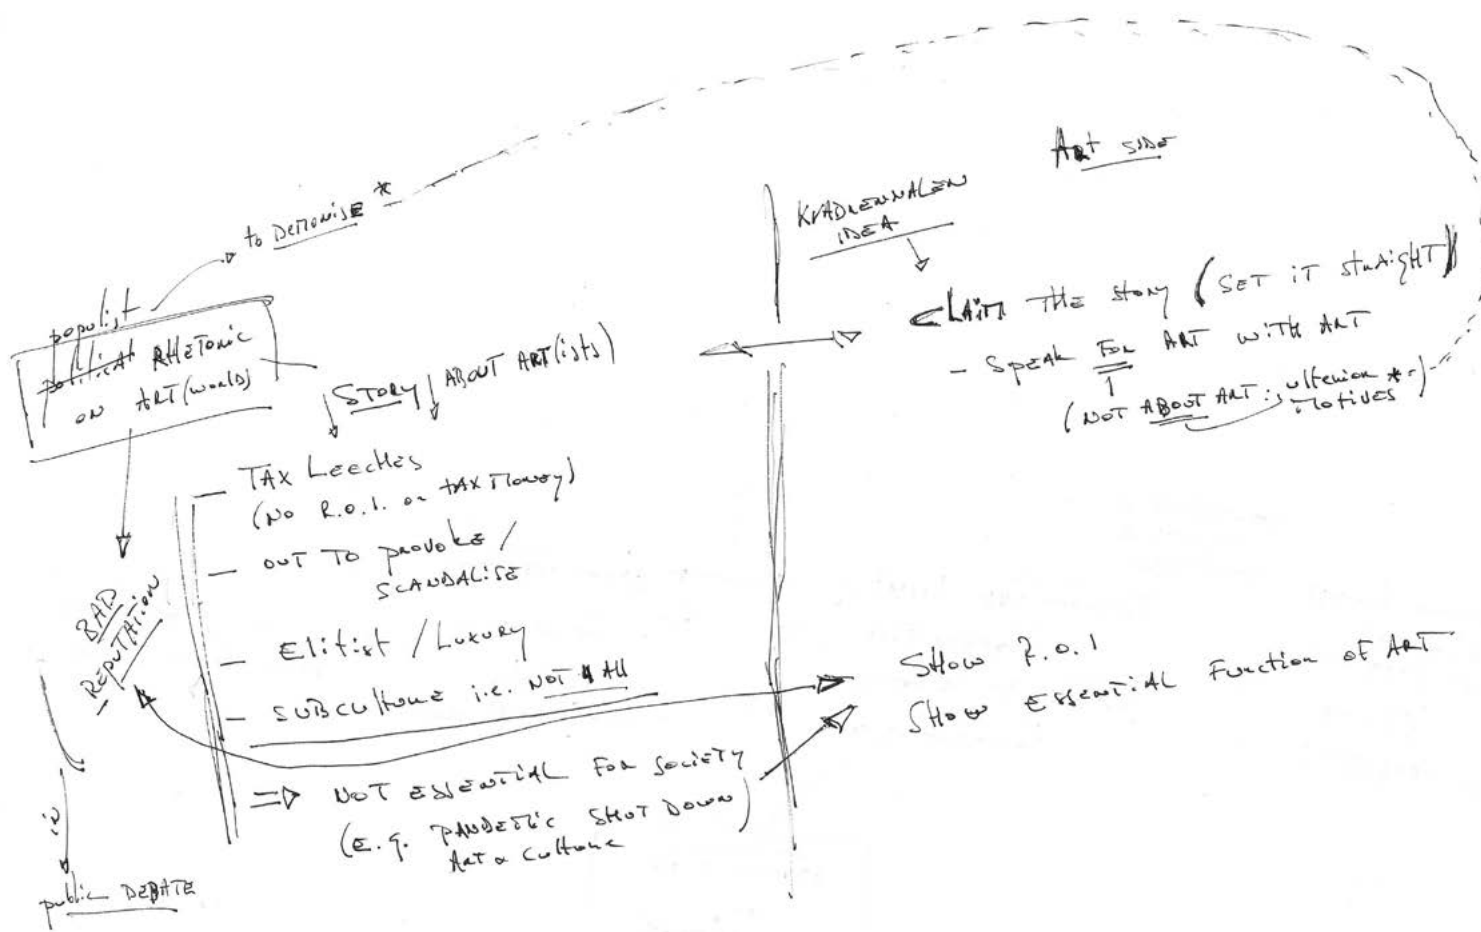 to DEMONISE *
populist
political RHETORIC
ON ART(WORLD)
STORY ABOUT ART(ists)
- TAX LEECHES
(NO R.O.I. on TAX MONEY)
- OUT TO PROVOKE /
SCANDALISE
- Elitist / Luxury
- SUBCULTURE i.e. NOT 4 All
=> NOT ESSENTIAL FOR SOCIETY
(E.g. PANDEMIC SHUT DOWN)
ART & CULTURE
BAD
REPUTATION
in
public DEBATE
ART SIDE
KVADRENNALEN
IDEA
CLAIM THE STORY (SET IT STRAIGHT)
- SPEAK FOR ART WITH ART
(NOT ABOUT ART: ulterior *
MOTIVES)
SHOW R.O.I
SHOW ESSENTIAL FUNCTION OF ART